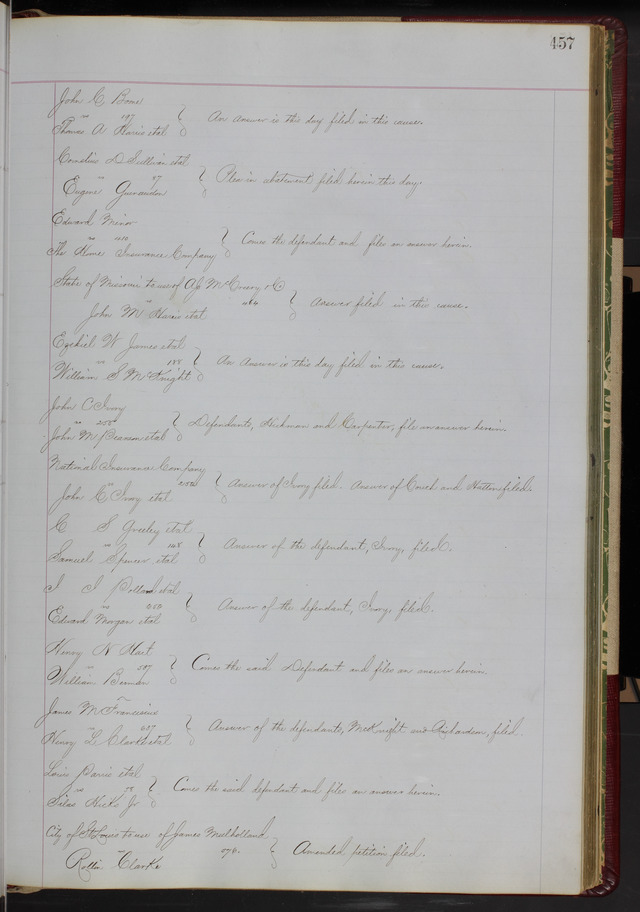 457
John C. Bone
vs 197 An answer is this day filed in this cause.
Thomas A Harris et al
Cornelius D Sullivan et al
vs 97 Plea in abatement filed herein this day.
Eugene Guiraudon
Edward Minor
vs 1110 Comes the defendant and files an answer herein.
The Home Insurance Company
State of Missouri to use of A J McCreery & Co
vs Answer filed in this cause.
John M Harris et al
Ezekiel W James et al
vs 188 An Answer is this day filed in this cause.
William S McKnight
John C Ivory
vs Defendants, Hickman and Carpenter, file an answer herein.
John M Pearson et al
National Insurance Company
vs Answer of Ivory filed. Answer of Couch and filed.
John C Ivory et al
C S Greeley et al
vs 148 Answer of the defendant, Ivory, filed.
Samuel Spencer et al
I I et al
vs Answer of the defendant, Ivory, filed.
Edward Morgan et al
Henry N Hart
vs 587 Comes the said Defendant and files an answer herein.
William Beaman
James M Franciscus
vs 607 Answer of the defendants, McKnight and Richardson, filed.
Henry L Clark et al
Louis et al
vs 78 Comes the said defendant and files an answer herein.
Silas Hicks Jr
City of St Louis to use of James Mulholland
vs Amended petition filed.
Rollin Clark